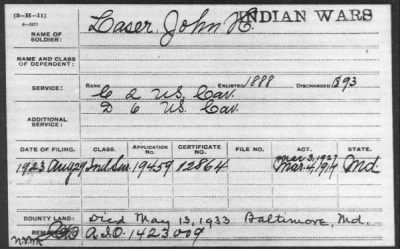 (3-H-11)
4-1071
NAME OF SOLDIER: Laser, John H. INDIAN WARS
NAME AND CLASS OF DEPENDENT:
SERVICE: RANK ENLISTED 1888 DISCHARGED 1893
C 2 U.S. Cav.
D 6 U.S. Cav.
ADDITIONAL SERVICE:
DATE OF FILING. CLASS. APPLICATION NO. CERTIFICATE NO. FILE NO. ACT. STATE.
Mar 3, 1927
1923 Aug 29 Ind Sur. 19459 12864 Mar. 4, 1917 Md
BOUNTY LAND: Died May 13, 1933 Baltimore, Md.
REMARKS: A.S.O. 1423009